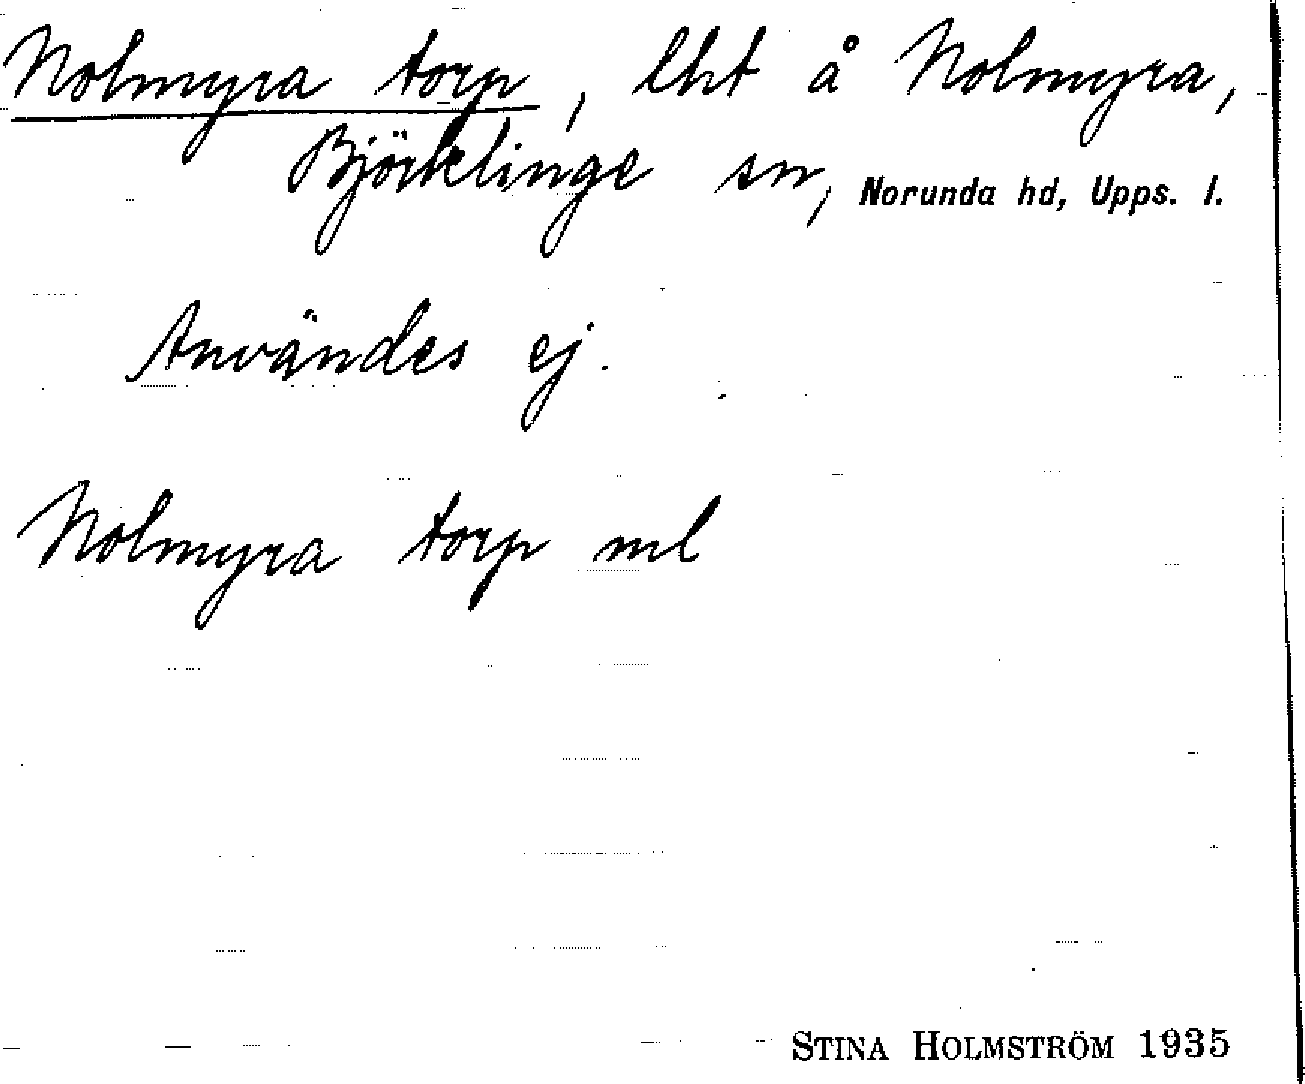 Nolmyra torp, lht å Nolmyra,
Björklinge sn, Norunda hd, Upps. l.
Användes ej.
Nolmyra torp ml
STINA HOLMSTRÖM 1935